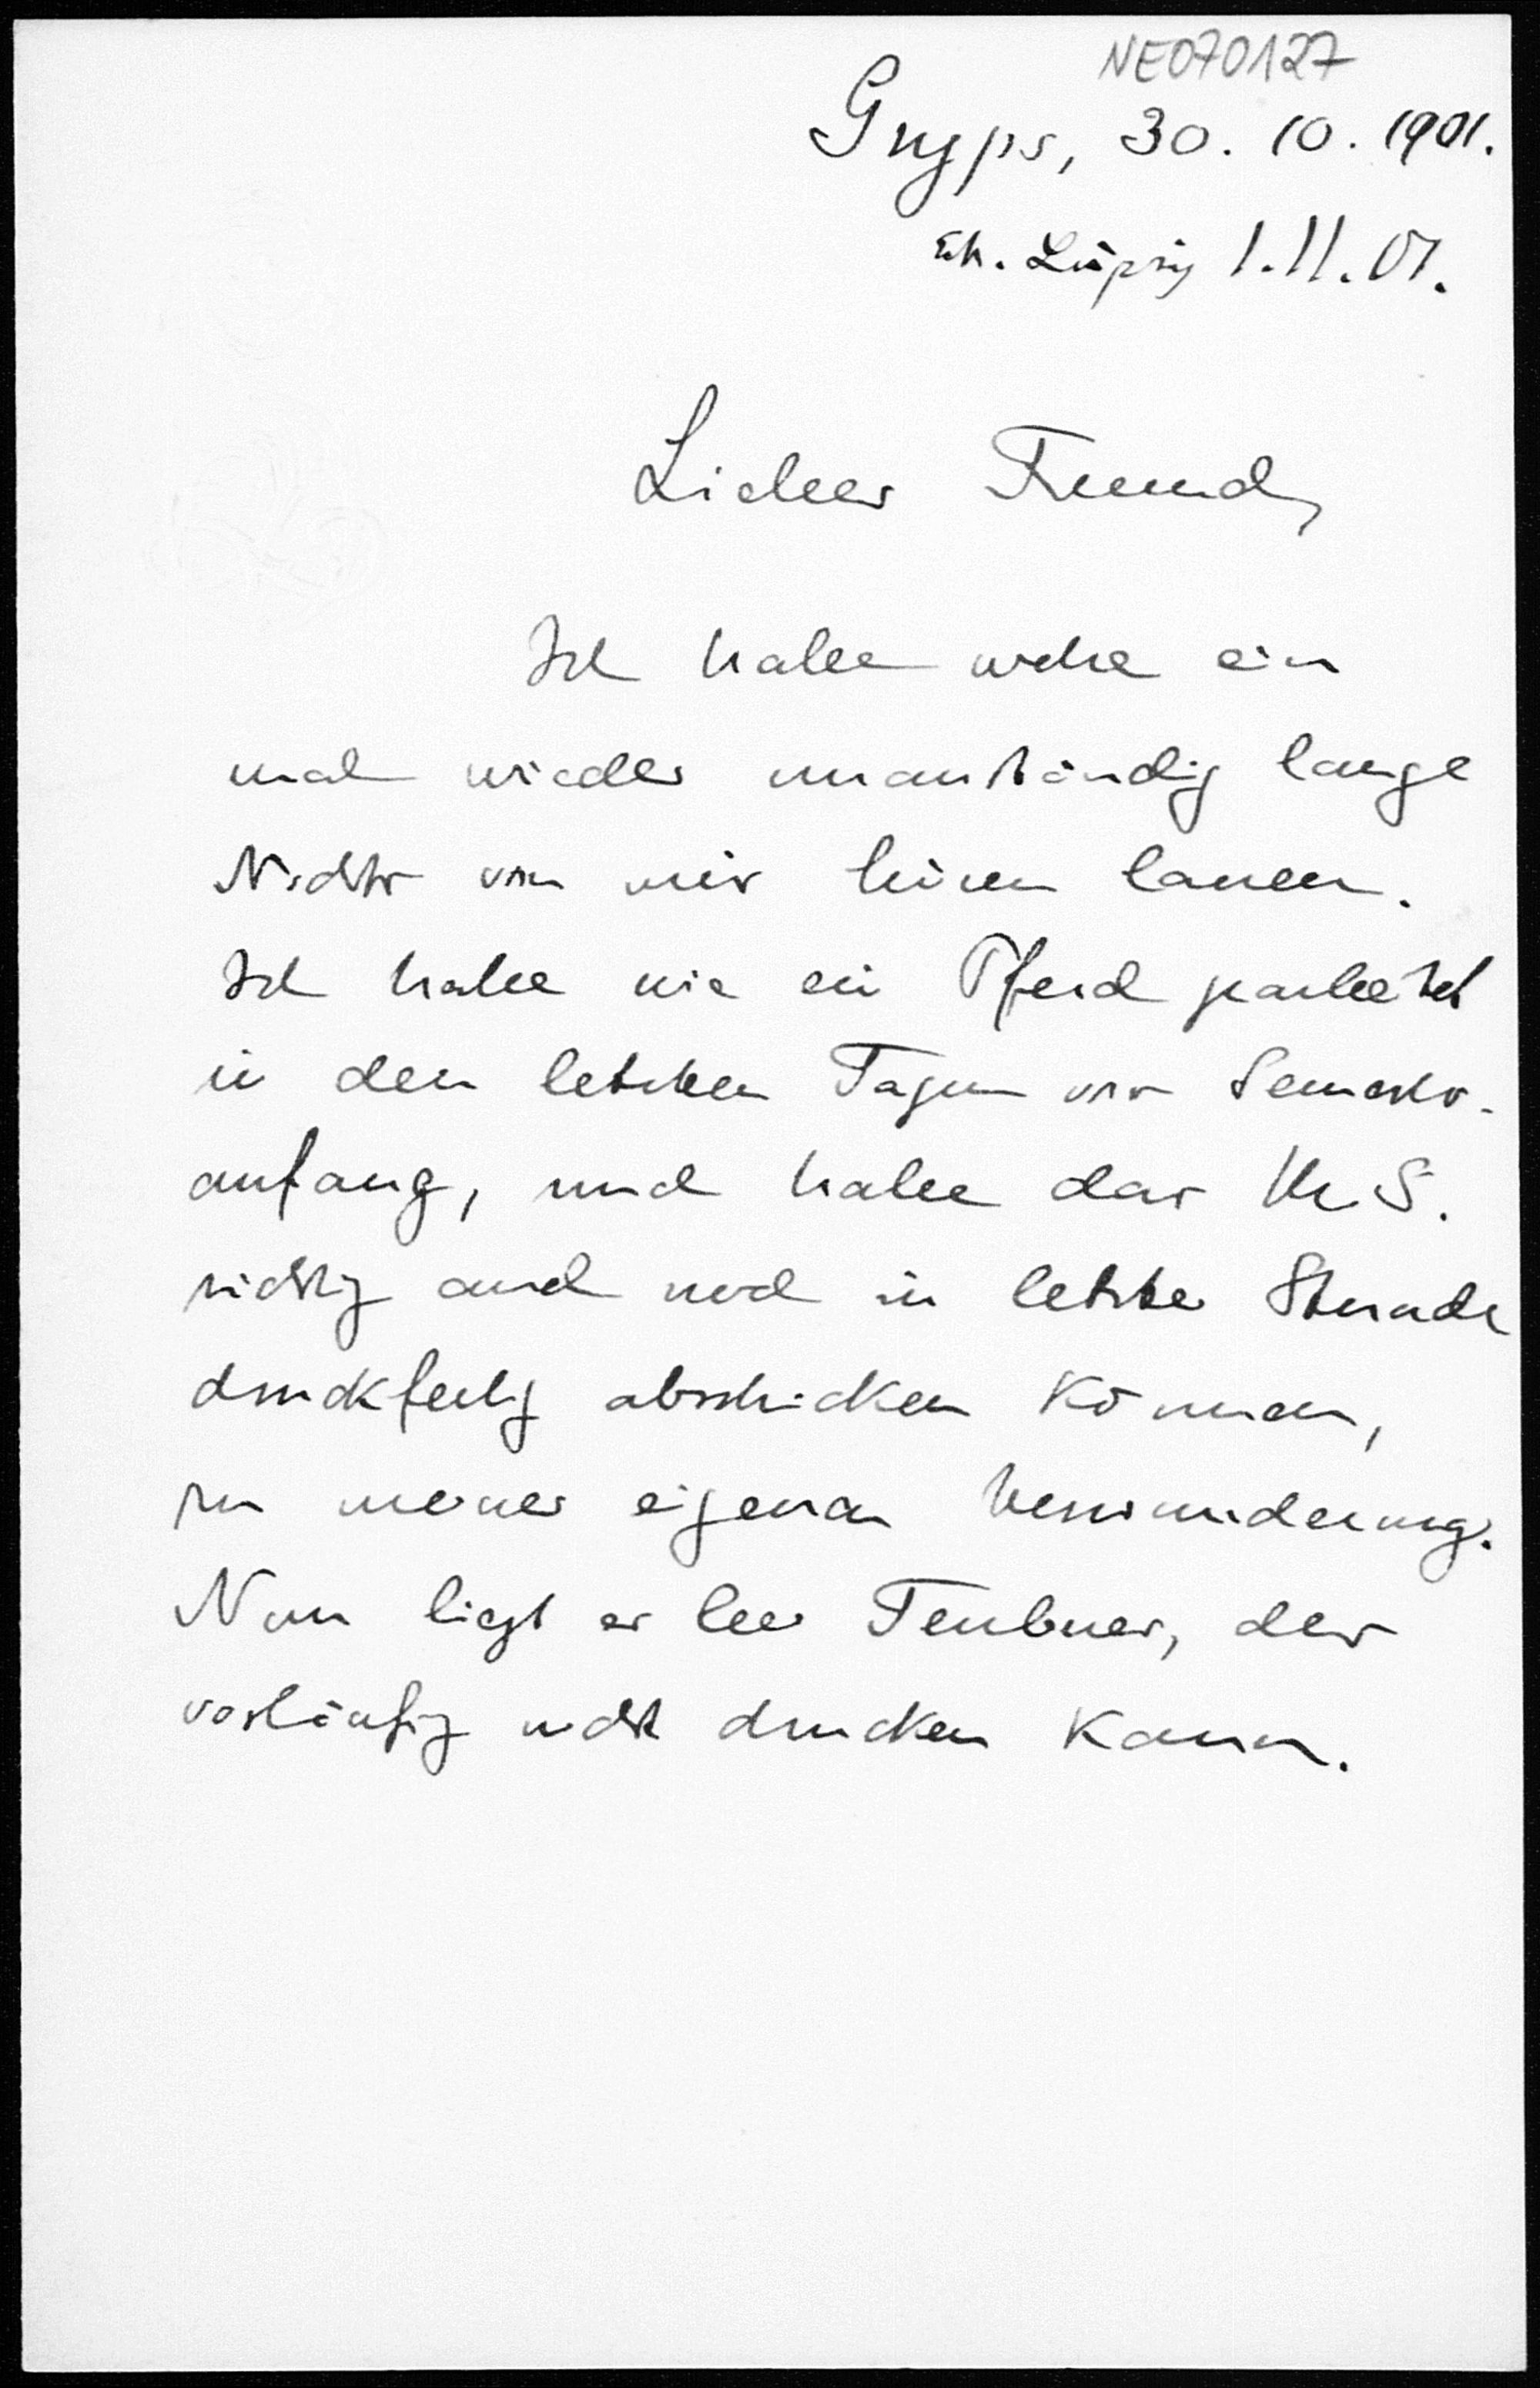 NE070127
Gryps, 30. 10. 1901.
erh. Leipzig 1.11.01.
Lieber Freund,
Ich habe ein
mal wieder unanständig lange
Nichts von mir hören lassen.
Ich habe wie ein Pferd gearbeitet
in den letzten Tagen vor Semester-
anfang, und habe das Ms.
richtig auch noch in letzter Stunde
druckfertig abschicken können,
zu meiner eigenen Verwunderung.
Nun liegt es bei Teubner, der
vorläufig nicht drucken kann.